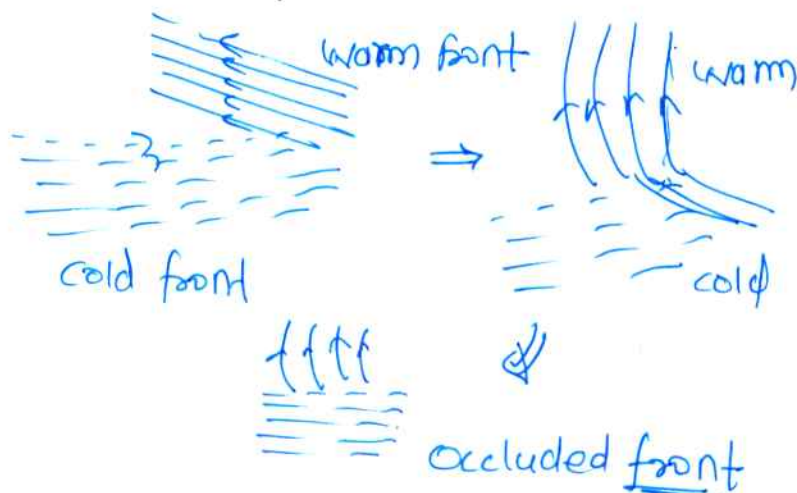 warm front
warm
cold front
cold
Occluded front